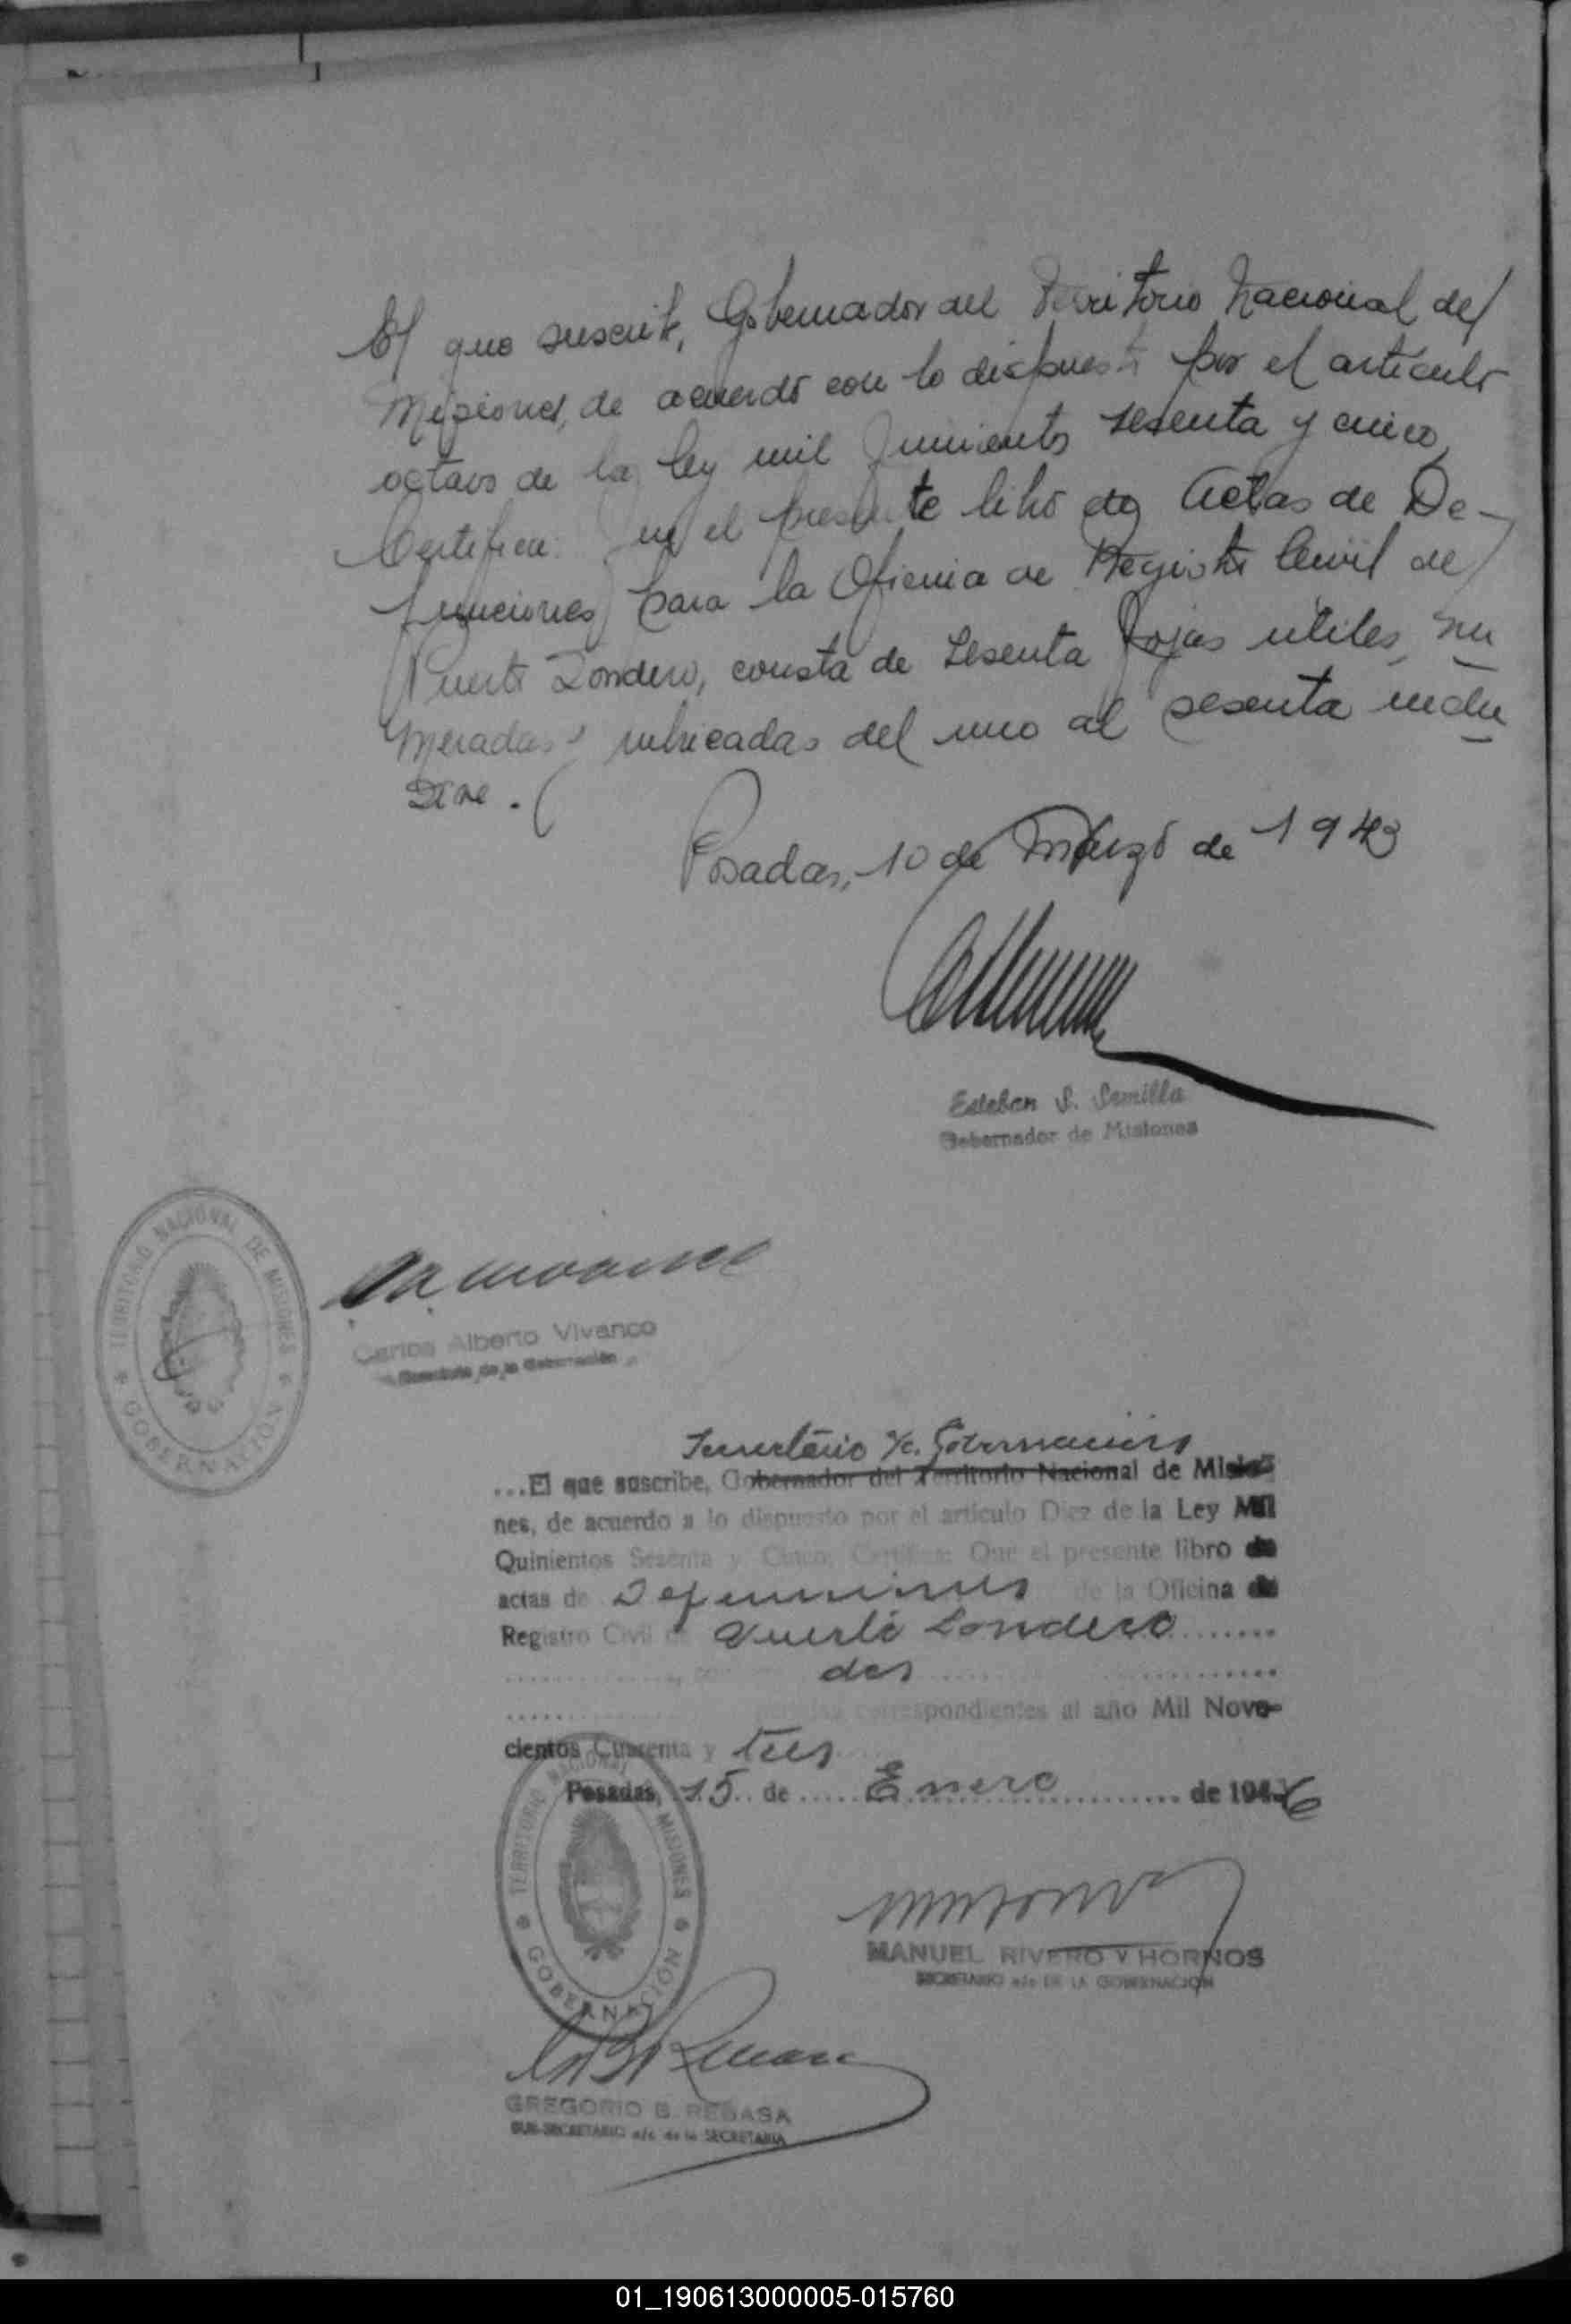 El que suscribe, Gobernador del Territorio Nacional de
Misiones, de acuerdo con lo dispuesto por el artículo
octavo de la ley mil quinientos sesenta y cinco,
Certifica: que el presente libro de Actas de De-
funciones para la Oficina de Registro Civil de
Puerto Londero, consta de sesenta fojas utiles, nu
meradas y rubricadas del uno al sesenta inclu
sive.
Posadas, 10 de Marzo de 1943
Esteban S. Semilla
Gobernador de Misiones
TERRITORIO NACIONAL DE MISIONES
GOBERNACION
Carlos Alberto Vivanco
Secretario de la Gobernación
Secretario %c. Gobernacion
...El que suscribe, Gobernador del Territorio Nacional de Misio-
nes, de acuerdo a lo dispuesto por el artículo Diez de la Ley Mil
Quinientos Sesenta y Cinco; Certifica: Que el presente libro de
actas de Defunciones de la Oficina de
Registro Civil de Puerto Londero
dos
correspondientes al año Mil Nove-
cientos Cuarenta y tres
Posadas, 15 de Enero de 1946
TERRITORIO NACIONAL MISIONES
GOBERNACION
MANUEL RIVERO Y HORNOS
SECRETARIO a/c DE LA GOBERNACION
GREGORIO B. REBASA
SUB-SECRETARIO a/c de la SECRETARIA
01_190613000005-015760